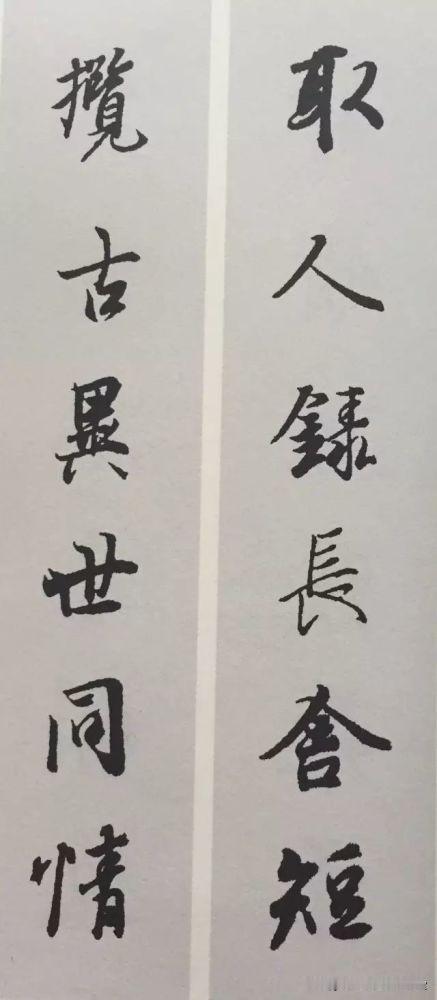 取人録長舍短
攬古異世同情